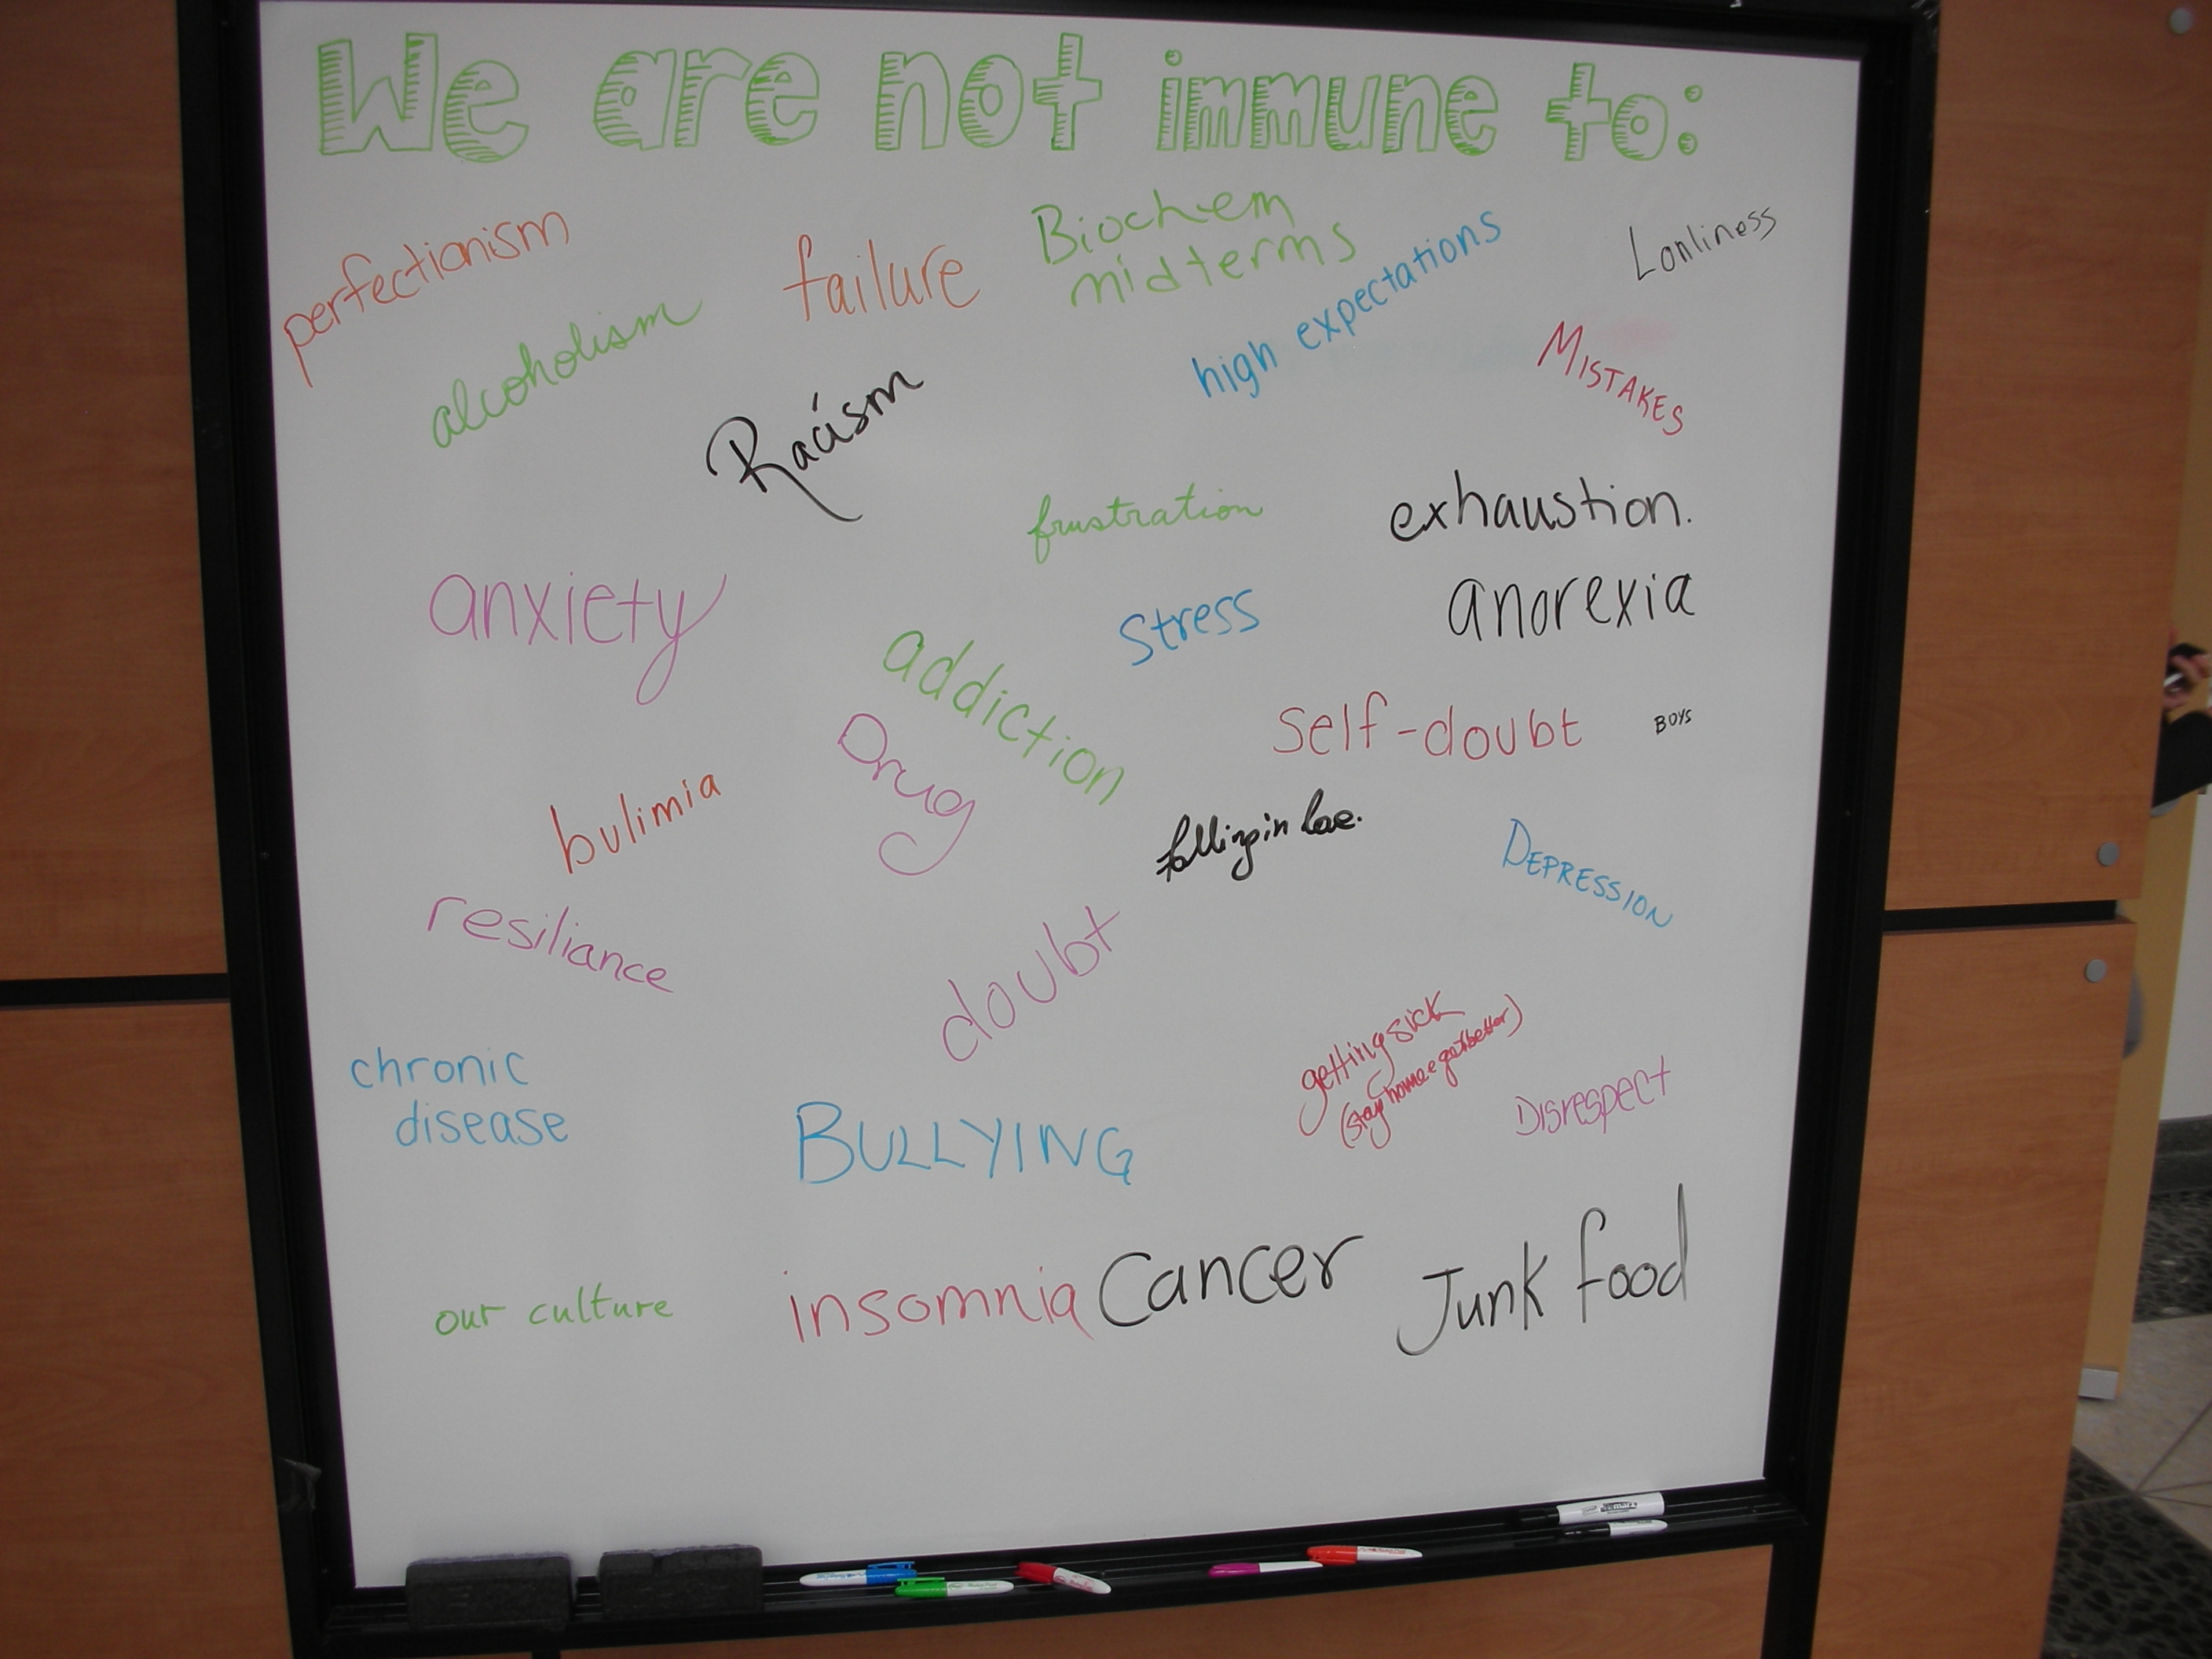 We are not immune to:
perfectionism
failure
Biochem
midterms
high expectations
Lonliness
alcoholism
Racism
MISTAKES
frustration
exhaustion.
anxiety
stress
anorexia
addiction
Drug
self-doubt
BOYS
bulimia
falling in love.
DEPRESSION
resiliance
doubt
getting sick
(stay home & get better)
chronic
disease
BULLYING
Disrespect
our culture
insomnia
Cancer
Junk food